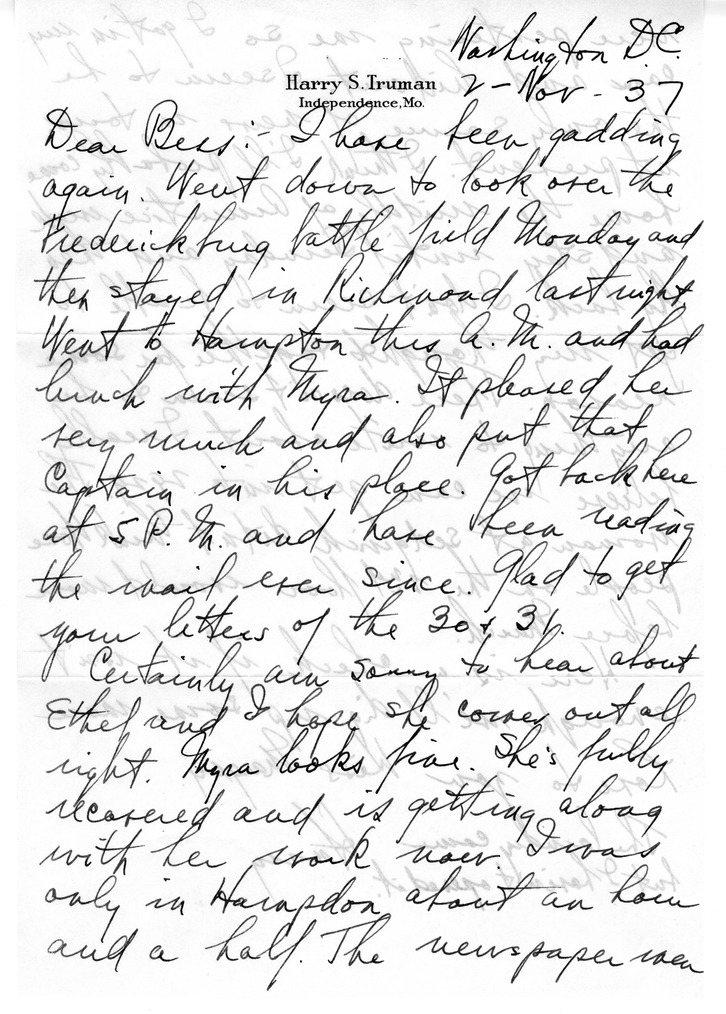 Washington D.C.
Harry S. Truman
Independence, Mo.
2-Nov-37
Dear Bess:- I have been gadding
again. Went down to look over the
Frederickburg battle field Monday and
then stayed in Richmond last night.
Went to Hampton this A.M. and had
lunch with Myra. It pleased her
very much and also put that
Captain in his place. Got back here
at 5 P.M. and have been reading
the mail ever since. Glad to get
your letters of the 30 & 31.
Certainly am sorry to hear about
Ethel and I hope she comes out all
right. Myra looks fine. She's fully
recovered and is getting along
with her work now. I was
only in Hampdon about an hour
and a half. The newspaper men